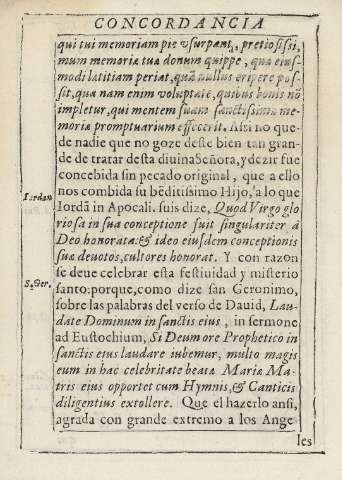 CONCORDANCIA
qui tui memoriam pie vsurpant, pretiosissi,
mum memoriæ tua donum quippe, qua eius-
modi latitiam periat, quã nullus eripere pos-
sit, qua nam enim voluptate, quibus bonis nõ
impletur, qui mentem suam sanctissima me-
moria promptuarium effecerit. Asi no que-
de nadie que no goze deste bien tan gran-
de de tratar desta diuina Señora, y dezir fue
concebida sin pecado original, que a ello
nos combida su bẽditissimo Hijo, a lo que
Iordan
Iordã in Apocali. suis dize, Quod Virgo glo
riosa in sua conceptione fuit singulariter à
Deo honorata: & ideo eiusdem conceptionis
sua deuotos, cultores honorat. Y con razon
se deue celebrar esta festiuidad y misterio
S. Ger.
santo: porque, como dize san Geronimo,
sobre las palabras del verso de Dauid, Lau-
date Dominum in sanctis eius, in sermone
ad Eustochium, Si Deum ore Prophetico in
sanctis eius laudare iubemur, multo magis
eum in hac celebritate beata Mariæ Ma-
tris eius opportet cum Hymnis, & Canticis
diligentius extollere. Que el hazerlo ansi,
agrada con grande extremo a los Ange
les